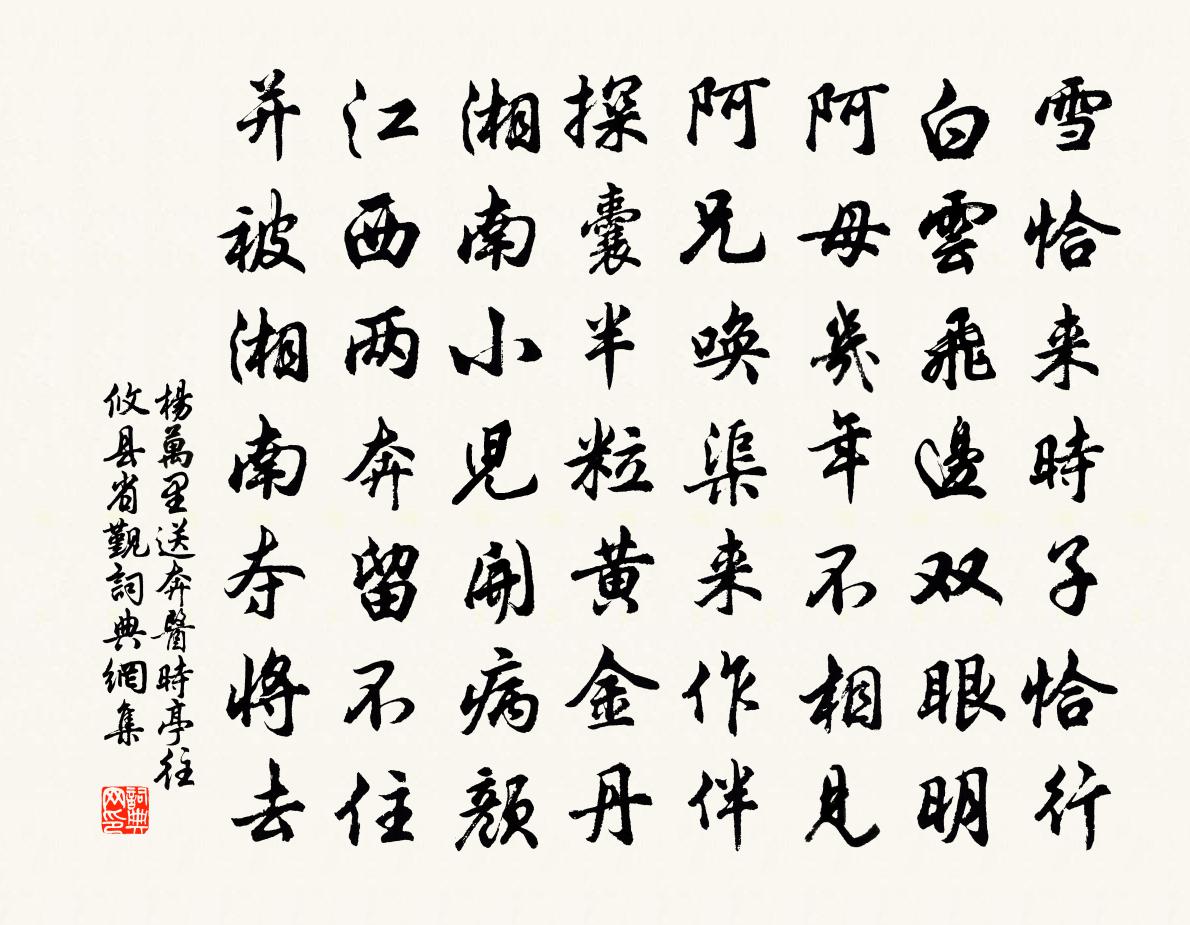 雪恰来時子恰行
白雲飛邊双眼明
阿母幾年不相見
阿兄喚渠来作伴
探囊半粒黄金丹
湘南小児開病顔
江西两奔留不住
并被湘南夺将去
楊萬里送奔醫時亭往
攸县省觀詞典網集
詞典网印